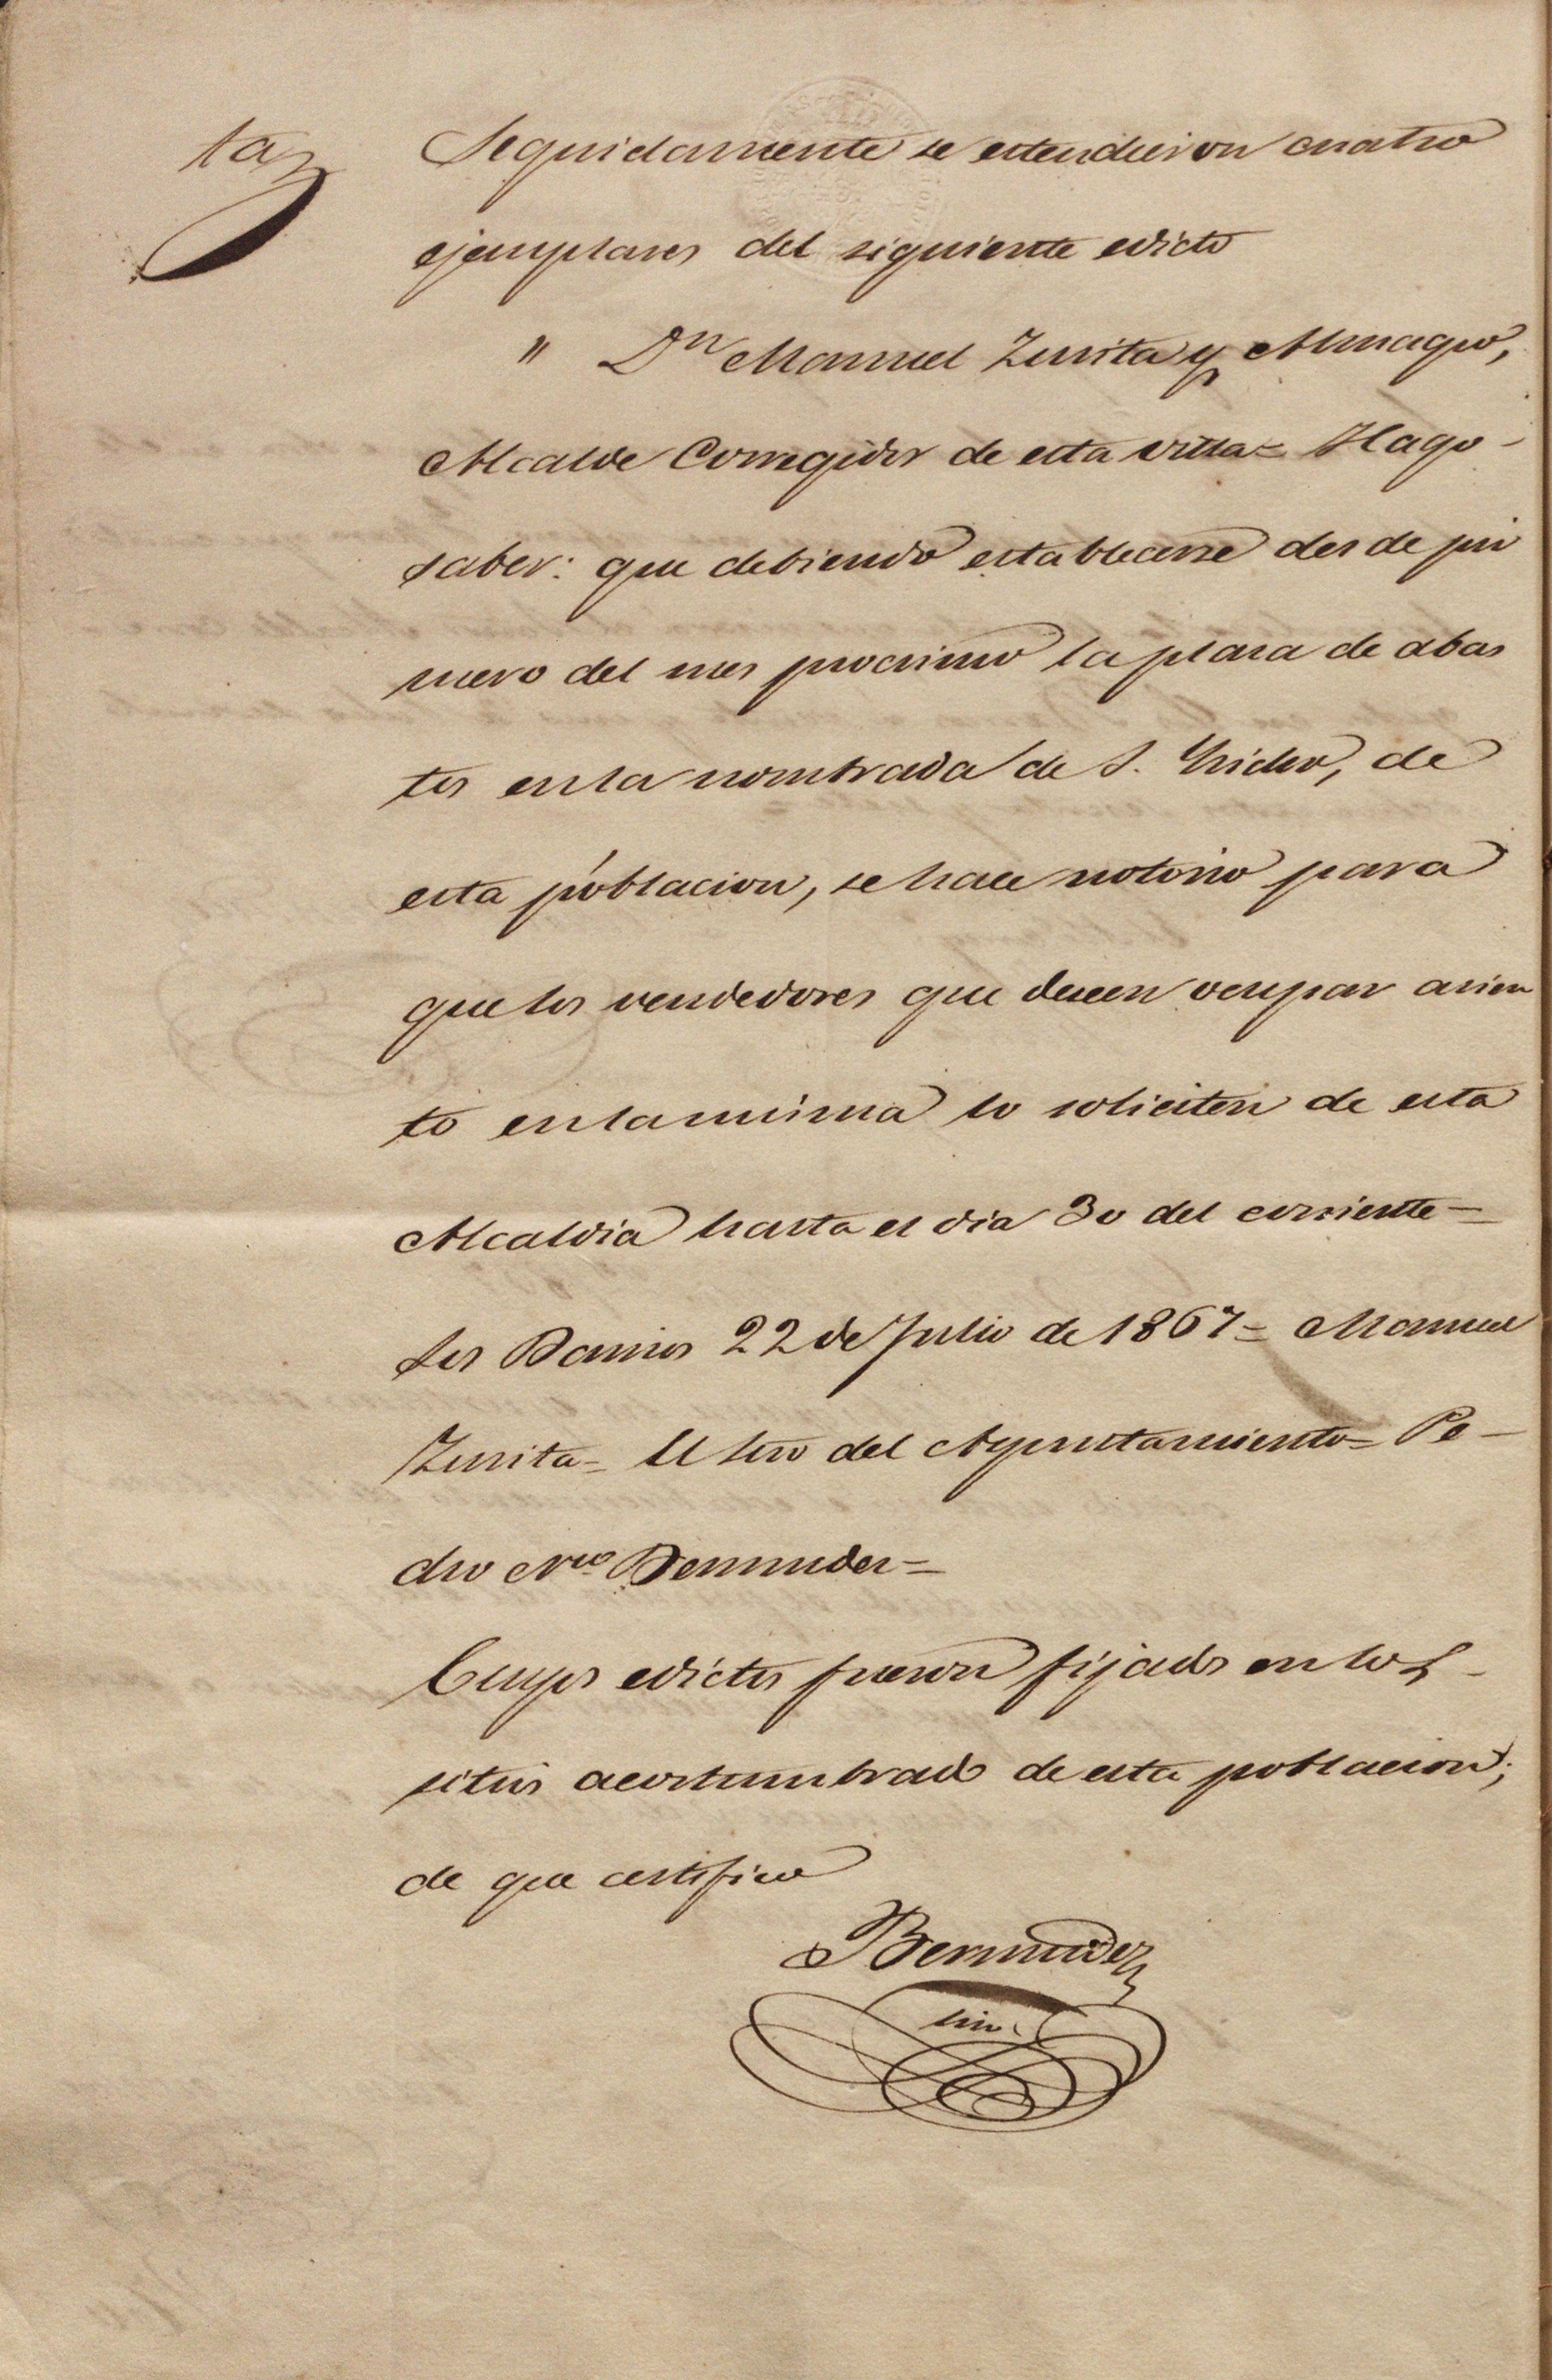 ta
Seguidamente se estendieron cuatro
ejemplares del siguiente edicto
" Dn Manuel Zurita y Almagro,
Alcalde Corregidor de esta villa = Hago -
saber: que debiendo establecerse desde pri
mero del mes procsimo la plasa de abas
tos en la nombrada de S. Ysidro, de
esta poblacion, se hace notorio para
que los vendedores que deseen ocupar asien
to en la misma lo soliciten de esta
Alcaldia hasta el dia 30 del corriente =
Los Barrios 22 de Julio de 1867 = Manuel
Zurita = El Srio del Ayuntamiento = Pe -
dro Bermudez =
Cuyos edictos fueron fijados en los -
sitios acostumbrados de esta poblacion;
de que certifico
Bermudez
Srio.